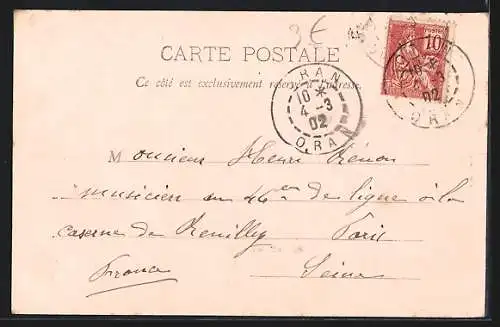 3€
10
CARTE POSTALE
Ce côté est exclusivement réservé à l'adresse.
ORAN
10 *
4 -3
02
ORAN
ORAN
02
Monsieur Henri
musicien au 46e de ligne à la
caserne de Reuilly Paris
France Seine